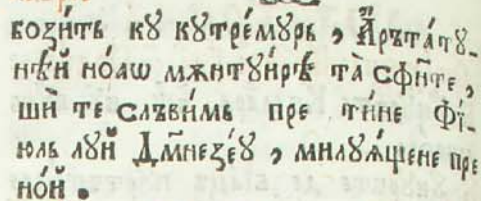 бозѝть кꙋ кꙋтре́мꙋрь , А҆́рътатꙋ-
нѣ́й но́аѡ мѫнтꙋи́рѣ та̀ сфи҃те ,
шѝ те слъви́мь пре ти́не Фї́-
юль лꙋ́й Дм҃незе́ꙋ , милꙋѧ́щене пре
но́й .